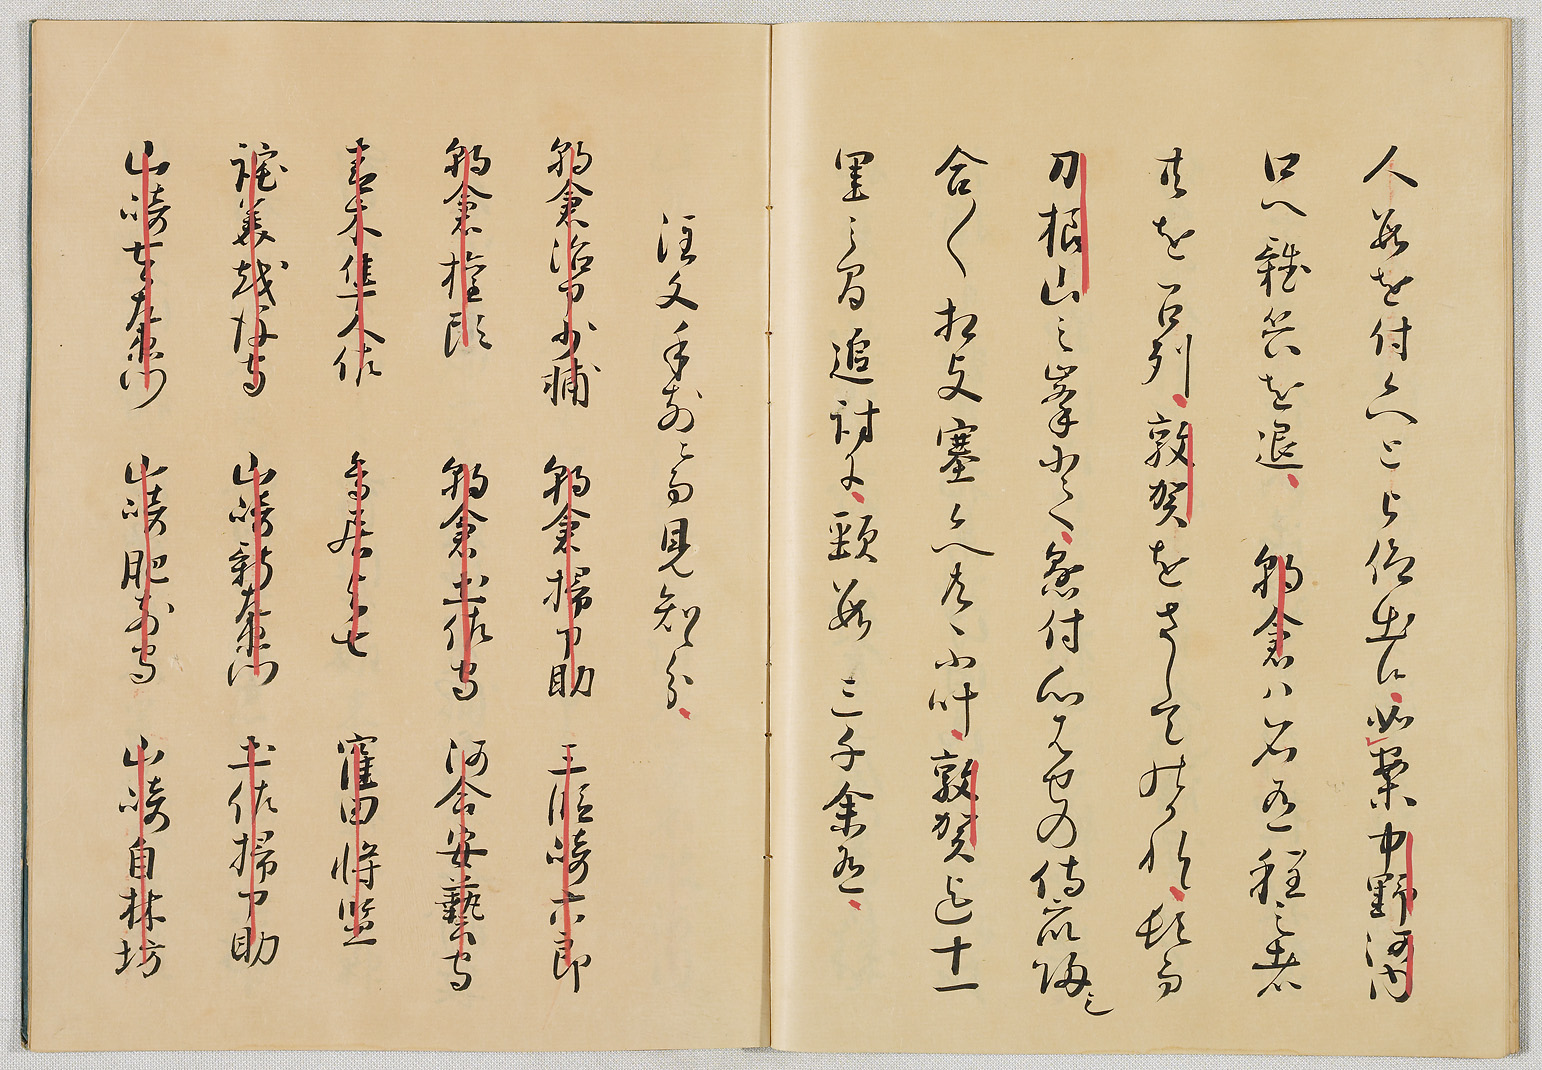 人数を付候へと被仰出候、如案中野河内
口へ雑兵を退、朝倉ハ名有程之者
共を召列、敦賀をさしてのかれ候、頓而
刀根山之峯にて、懸付心はせの侍衆帰し
合〳〵相支塞候へ共、不叶、敦賀迄十一
里之間追討に、頸数三千余有、
注文手前ニ而見知分、
朝倉治部少輔　朝倉掃部助　三段崎六郎
朝倉権頭　朝倉土佐守　河合安藝守
青木隼人佐　鳥居与七　窪田将監
詫美越後守　山崎新左衛門　土佐掃部助
山崎七左衛門　山崎肥前守　山崎自林坊